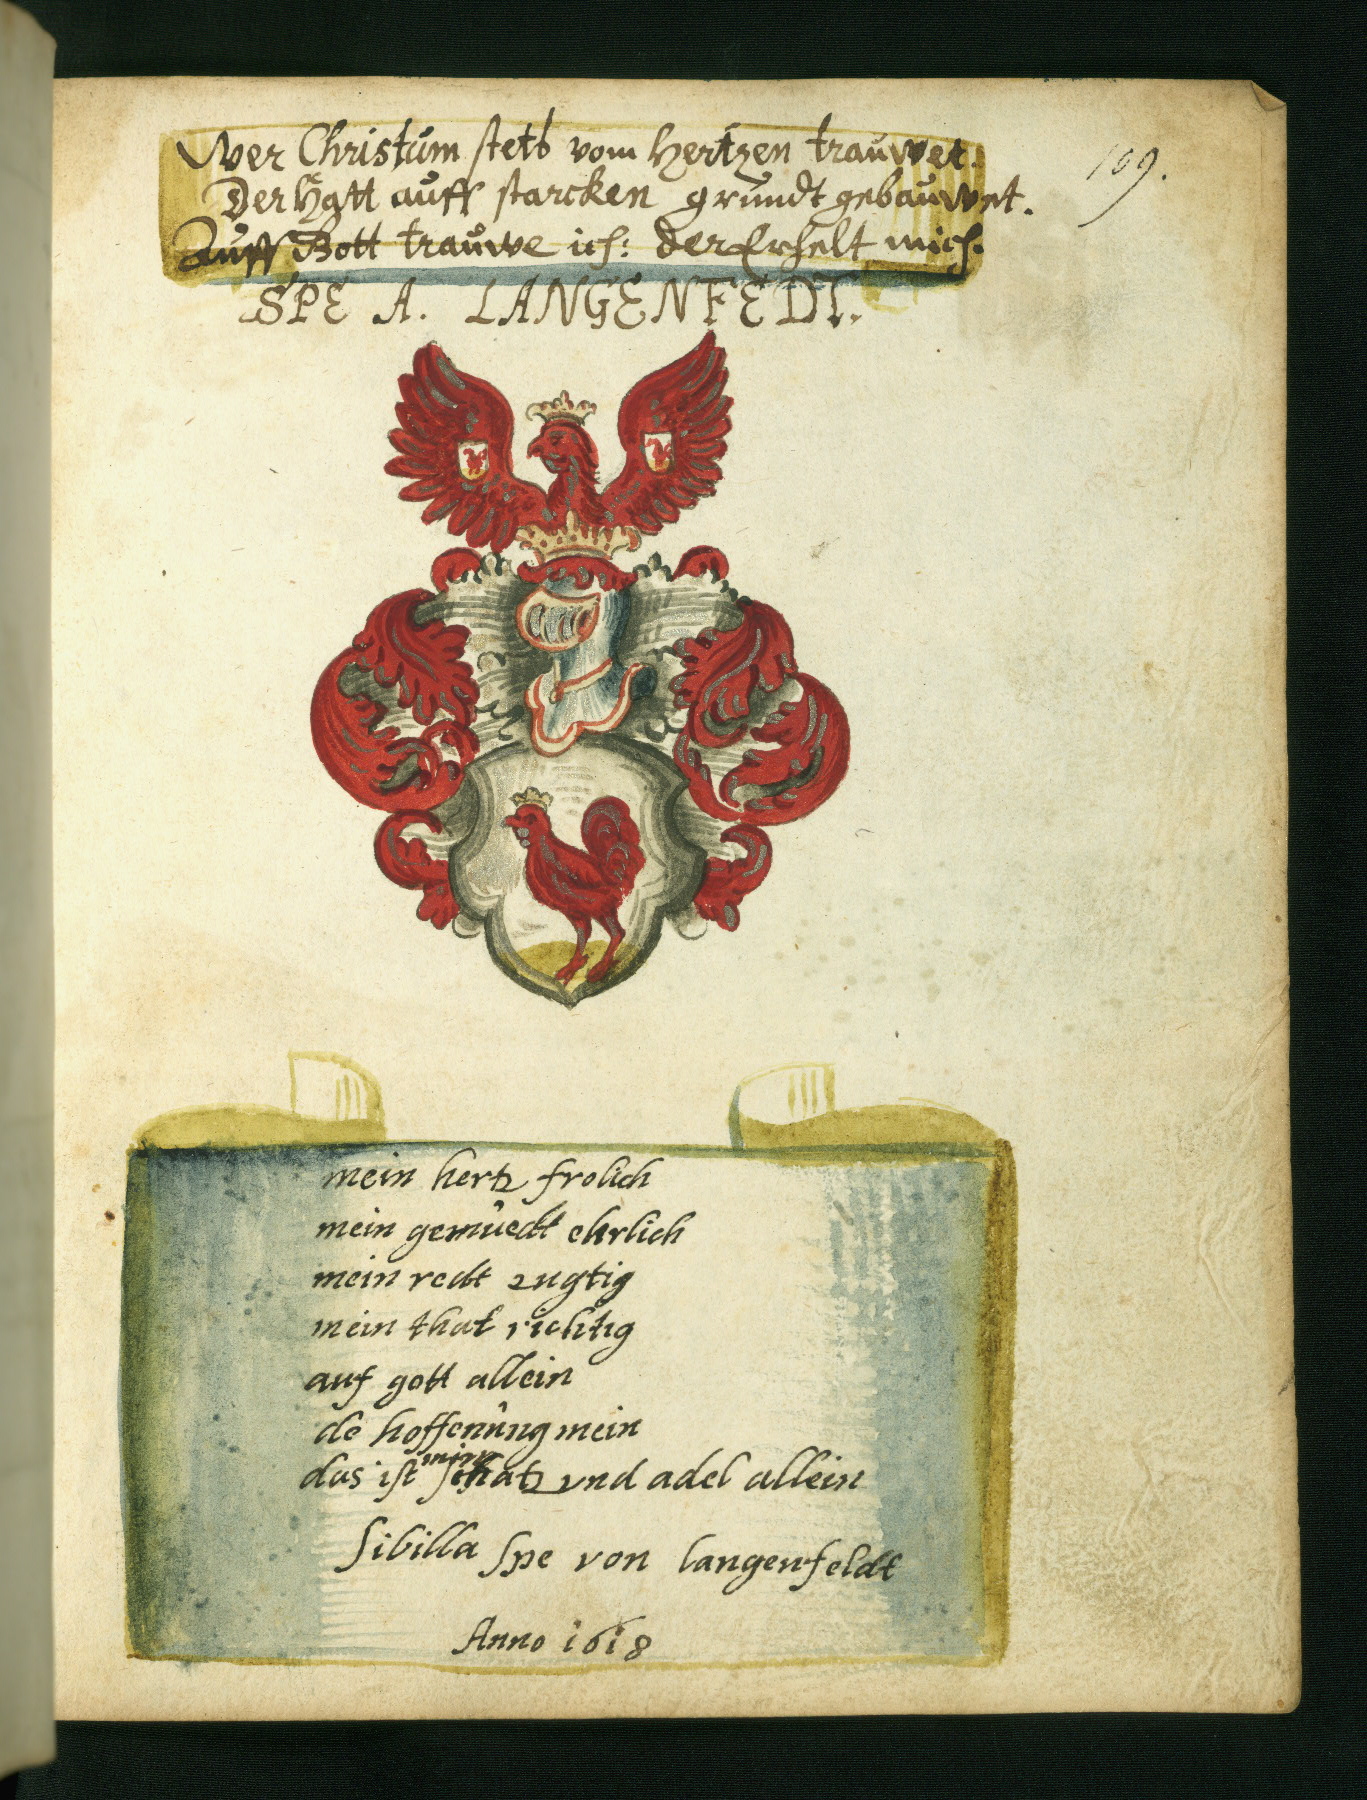 Wer Christum stets vom Hertzen trauwet.
109.
Der Hatt auff starcken grundt gebauwet.
Auff Gott trauwe ich: der Erhelt mich.
SPE A. LANGENFEDT.
mein hertz frolich
mein gemuedt ehrlich
mein redt zugtig
mein that richtig
auf gott allein
de hoffenung mein
das ist mein schatz vnd adel allein
Sibilla Spe von langenfeldt
Anno 1618